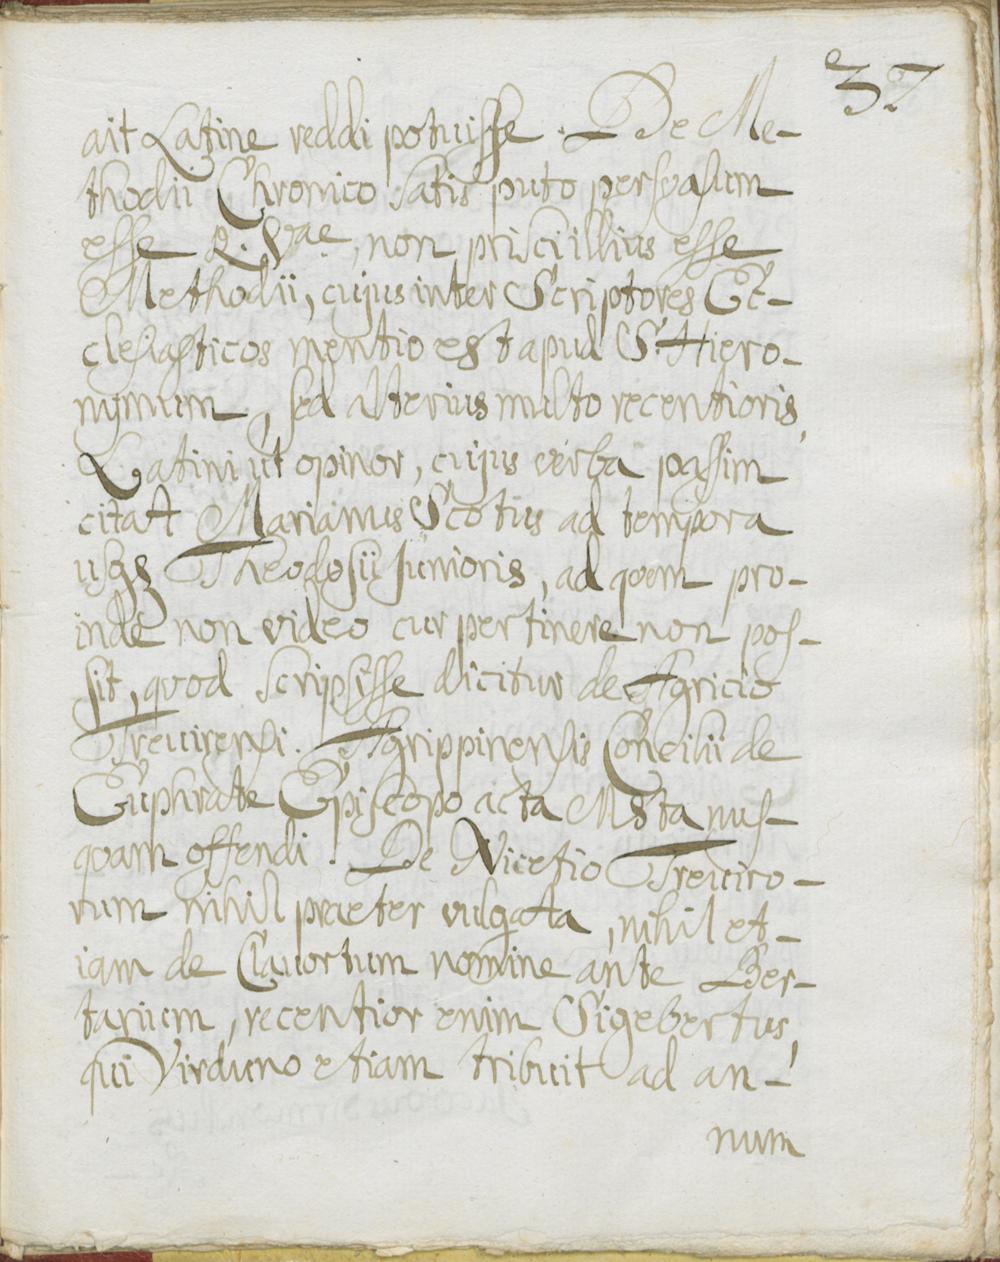 37
ait Latine reddi potuisse. De Me-
thodii Chronico satis puto persvasum
esse R. Vae, non prisci illius esse
Methodii, cujus inter Scriptores Ec-
clesiasticos mentio est apud S. Hiero-
nymum, sed alterius multo recentioris,
Latini ut opinor, cujus verba passim
citat Marianus Scotus ad tempora
usq3 Theodosii Junioris, ad quem pro-
inde non video cur pertinere non pos-
sit, quod scripsisse dicitur de Agricio
Trevirensi. Agrippinensis Concilii de
Euphrate Episcopo acta Msta nus-
quam offendi. De Nicetio Treviro-
rum nihil praeter vulgata, nihil et-
iam de Clavorum nomine ante Ber-
tarium, recentior enim Sigebertus,
qui Virduno etiam tribuit ad an-
num